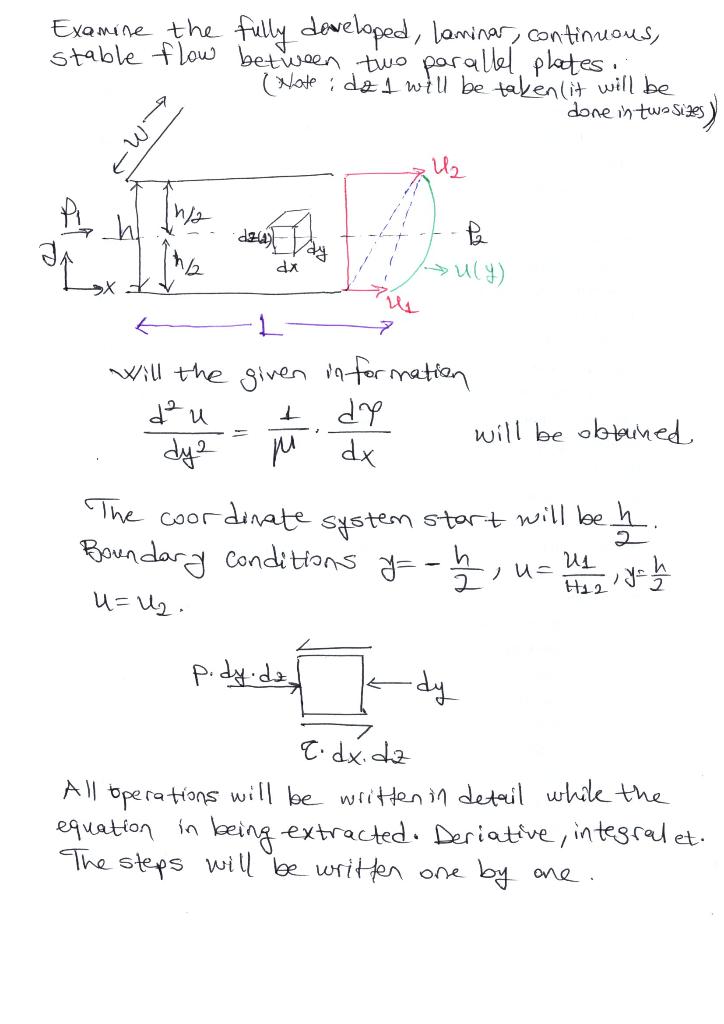 Examine the fully developed, laminar, continuous,
stable flow between two parallel plates.
(Note : dz 1 will be taken (it will be
done in two sizes)
W
U2
P1
h
h/2
h/2
dz(1)
dy
dx
P2
u(y)
y
x
U1
L
Will the given information
d²u/dy² = 1/μ · dP/dx will be obtained
The coordinate system start will be h/2.
Boundary conditions y= - h/2, u= U1/, y= h/2
U= U2.
P. dy. dz
dy
τ. dx. dz
All operations will be written in detail while the
equation in being extracted. Deriative, integral et.
The steps will be written one by one.